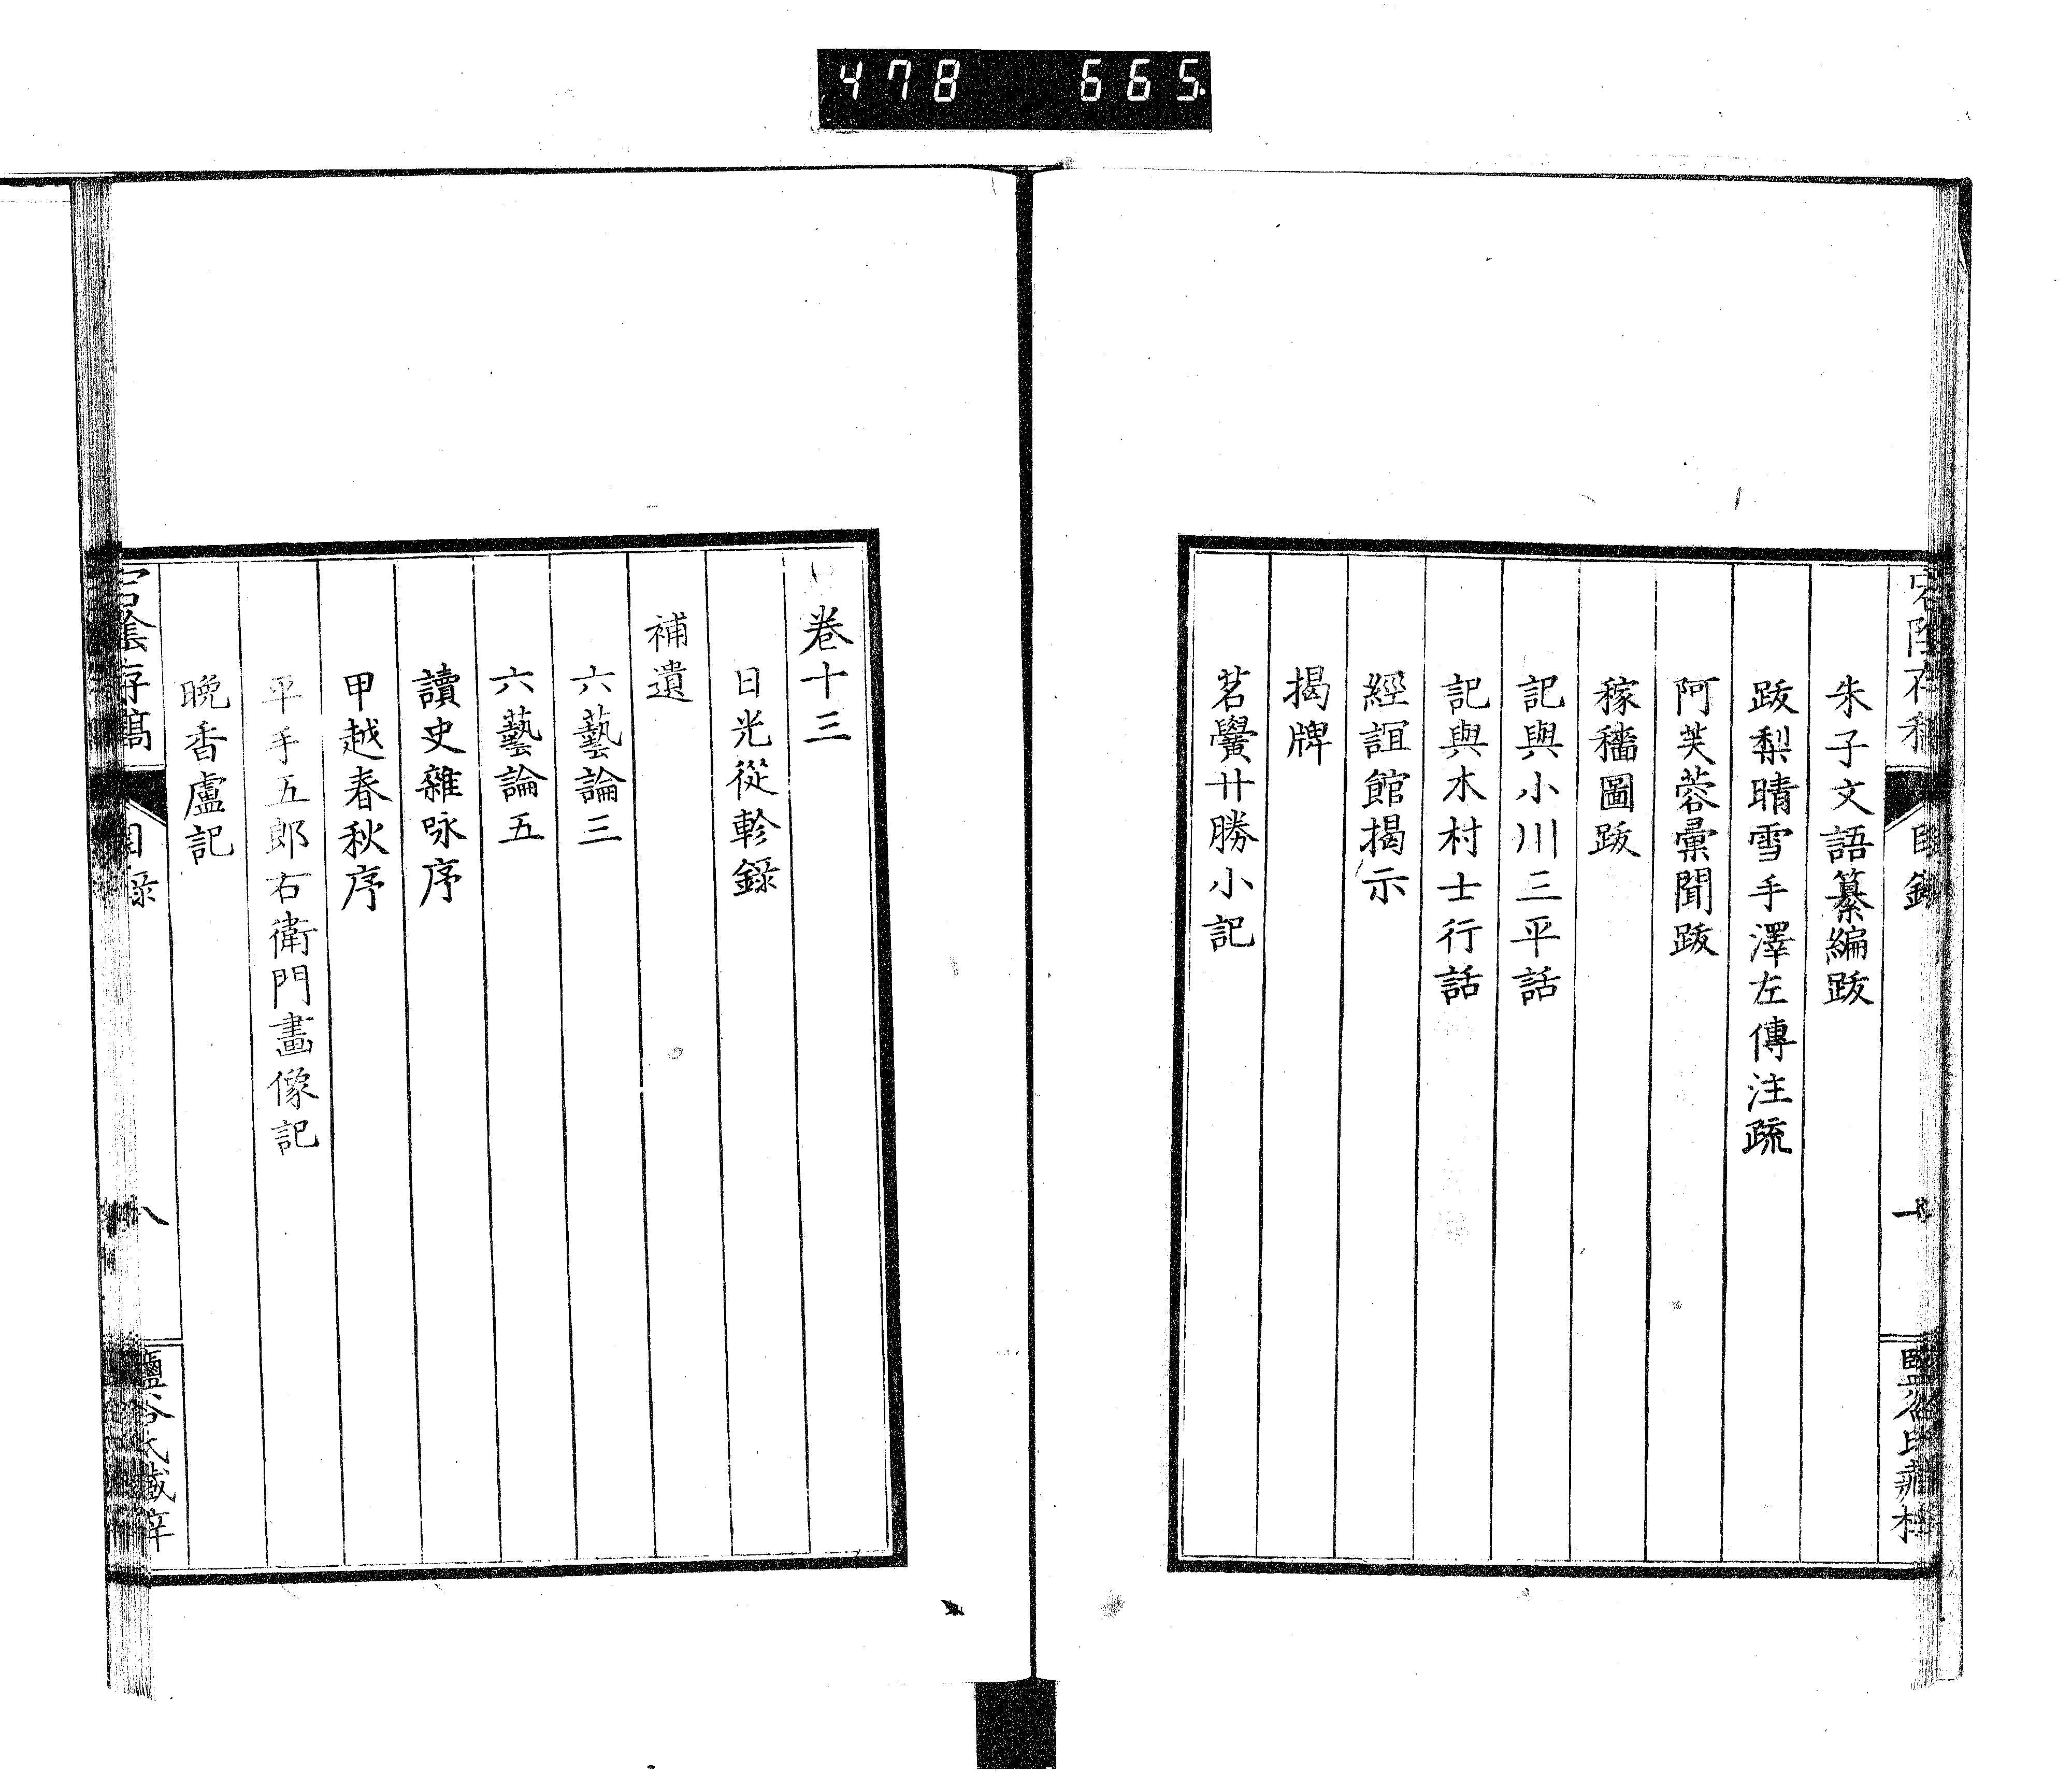 478 665
朱子文語纂編跋
跋梨晴雪手澤左傳注疏
阿芙蓉彙聞跋
稼穡圖跋
記與小川三平話
記與木村士行話
經誼館揭示
揭牌
茗黌廿勝小記
卷十三
日光從軫錄
補遺
六藝論三
六藝論五
讀史雜咏序
甲越春秋序
平手五郎右衛門畫像記
晚香廬記
宕陰存稿
目錄
八
鹽谷氏藏梓